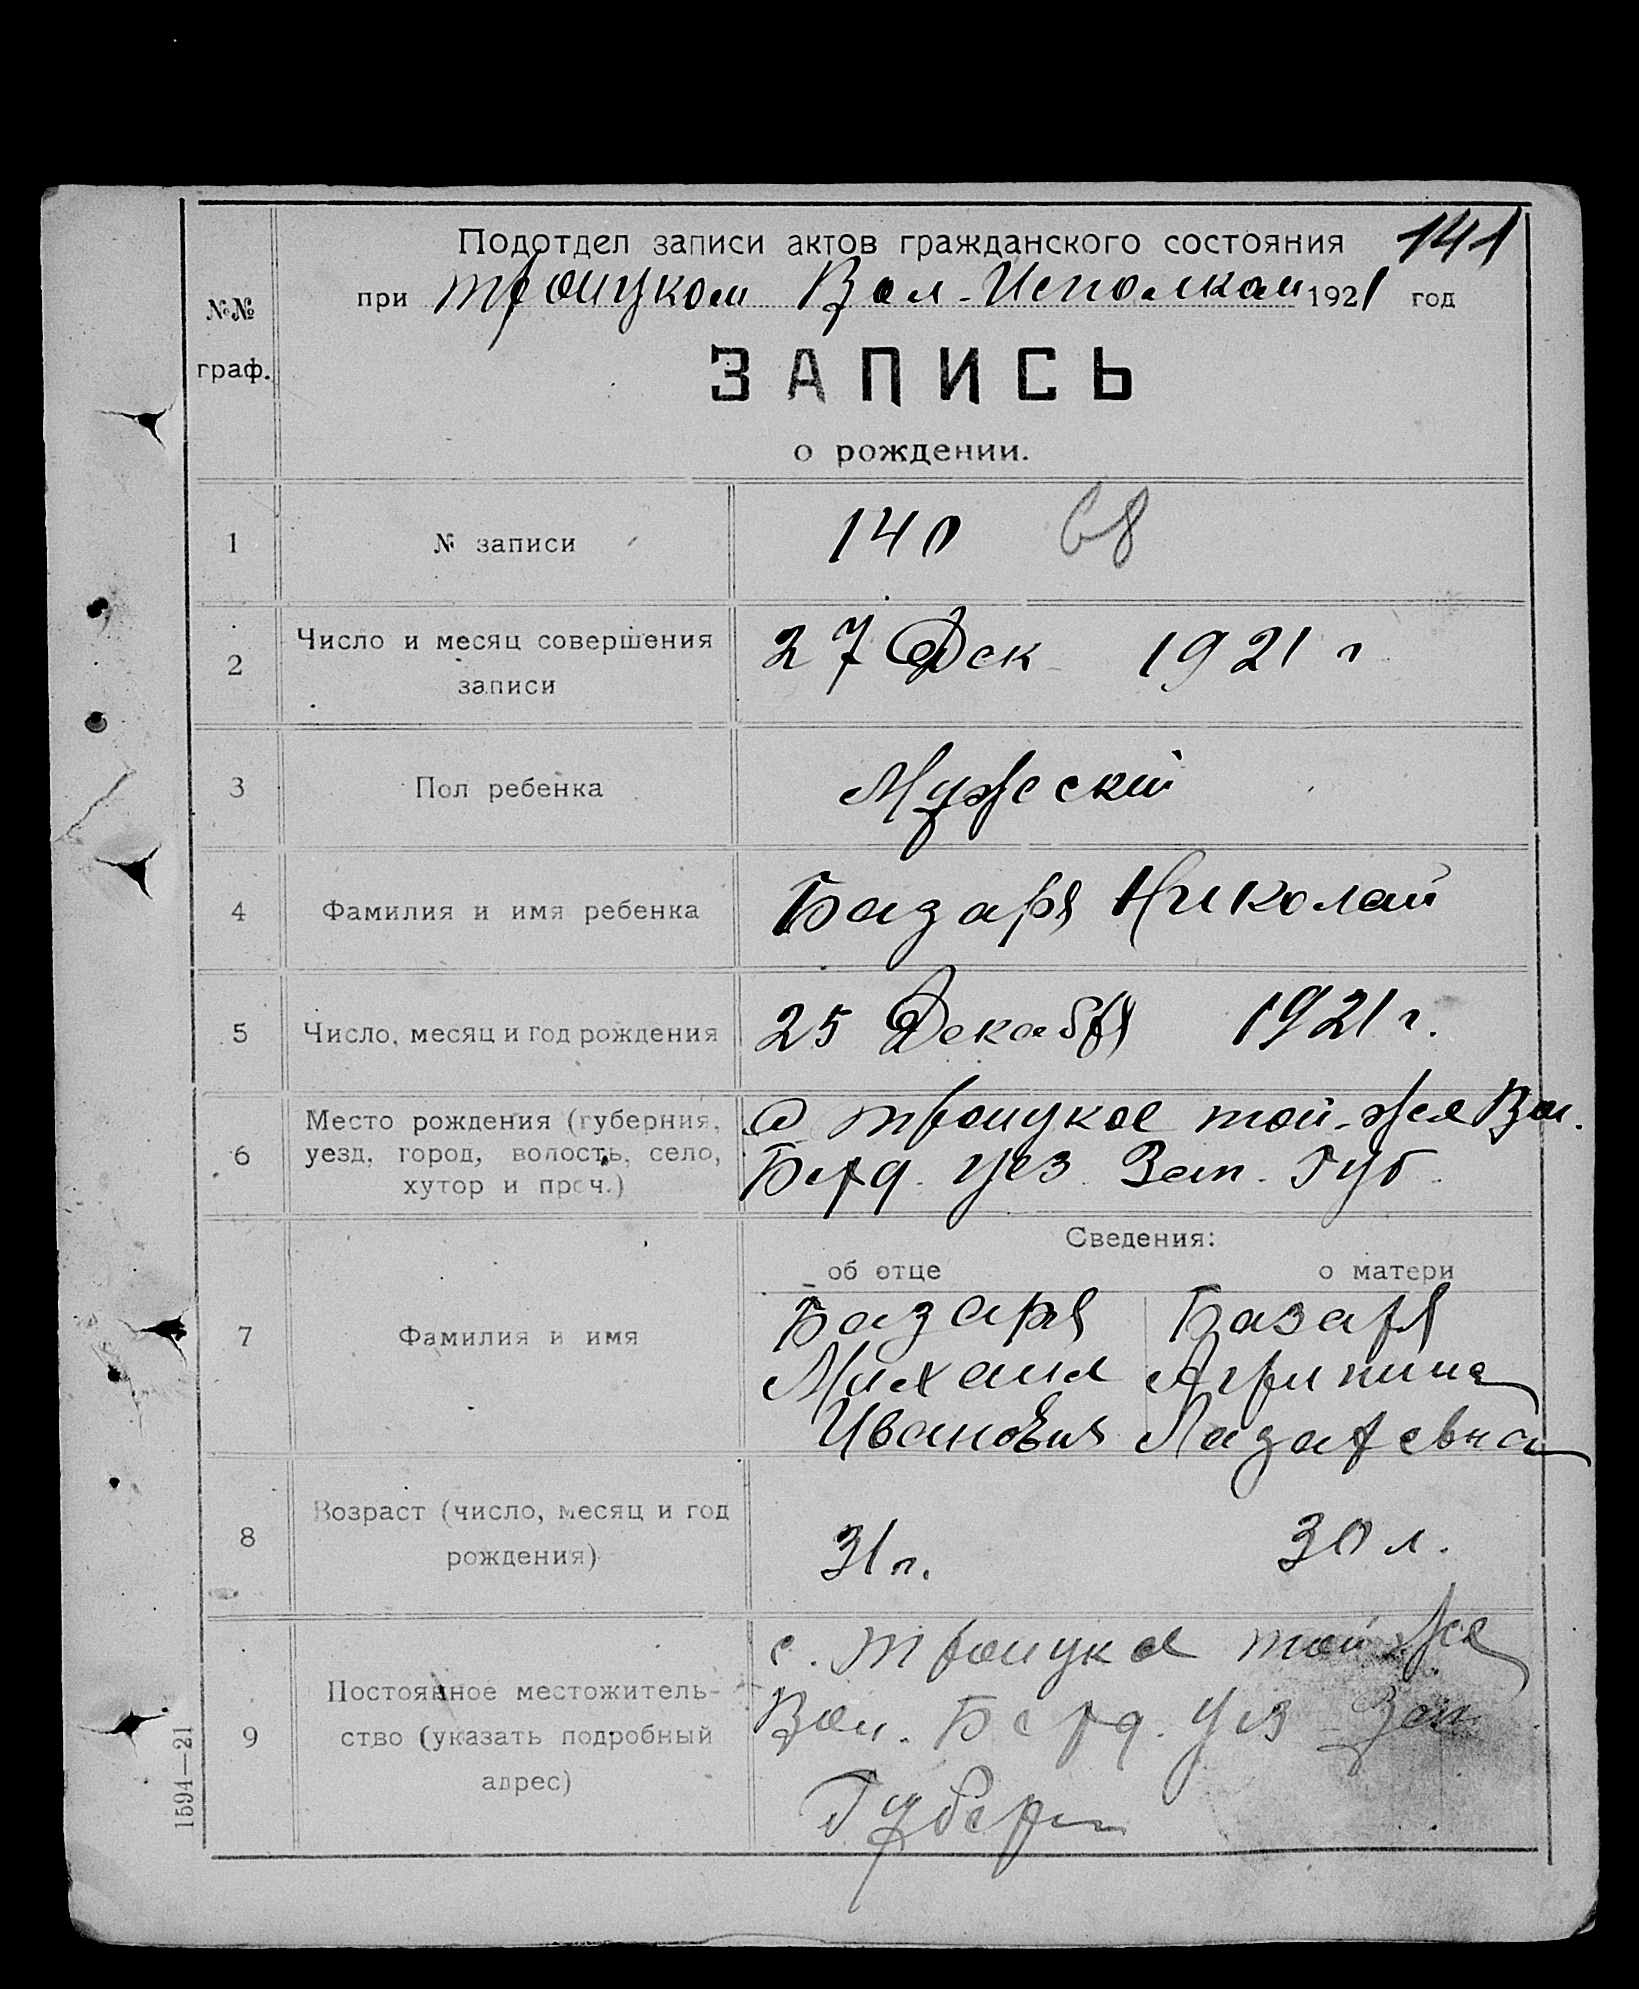 141
Подотдел записи актов гражданского состояния
при Троицком Вол-Исполкам 1921 год
№№
граф.
ЗАПИСЬ
о рождении.
1 № записи 140 68
2 Число и месяц совершения записи 27 Дек 1921 г
3 Пол ребенка Мужеский
4 Фамилия и имя ребенка Базаря Николай
5 Число, месяц и год рождения 25 Декабря 1921 г.
6 Место рождения (губерния, уезд, город, волость, село, хутор и проч.)
с Троицкое той-же Вол.
Берд. уез. Зап. Губ.
Сведения:
об отце о матери
7 Фамилия и имя
Базаря Базаря
Михаил Агрипина
Иванович Лазаревна
8 Возраст (число, месяц и год рождения) 31 г. 30 л.
9 Постоянное местожитель-
ство (указать подробный
адрес)
с. Троицкое той же
Вол. Берд. Уез Зап
Губерн
1594—21